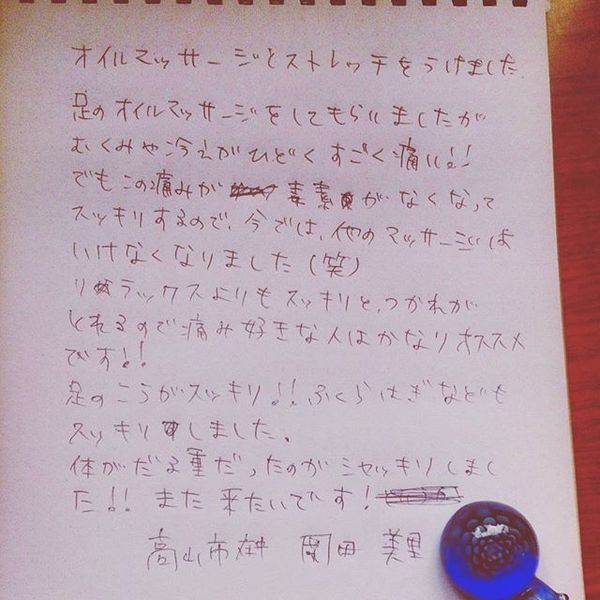 オイルマッサージとストレッチをうけました。
足のオイルマッサージをしてもらいましたが
むくみや冷えがひどくすごく痛い!!
でもこの痛みが 毒素がなくなって
スッキリするので、今では、他のマッサージは
いけなくなりました(笑)
リラックスよりもスッキリと、つかれが
とれるので痛み好きな人はかなりオススメ
です!!
足のこうがスッキリ!!ふくらはぎなども
スッキリしました。
体がだる重だったのがシャッキリしまし
た!!また来たいです!
高山市在 関田 美里